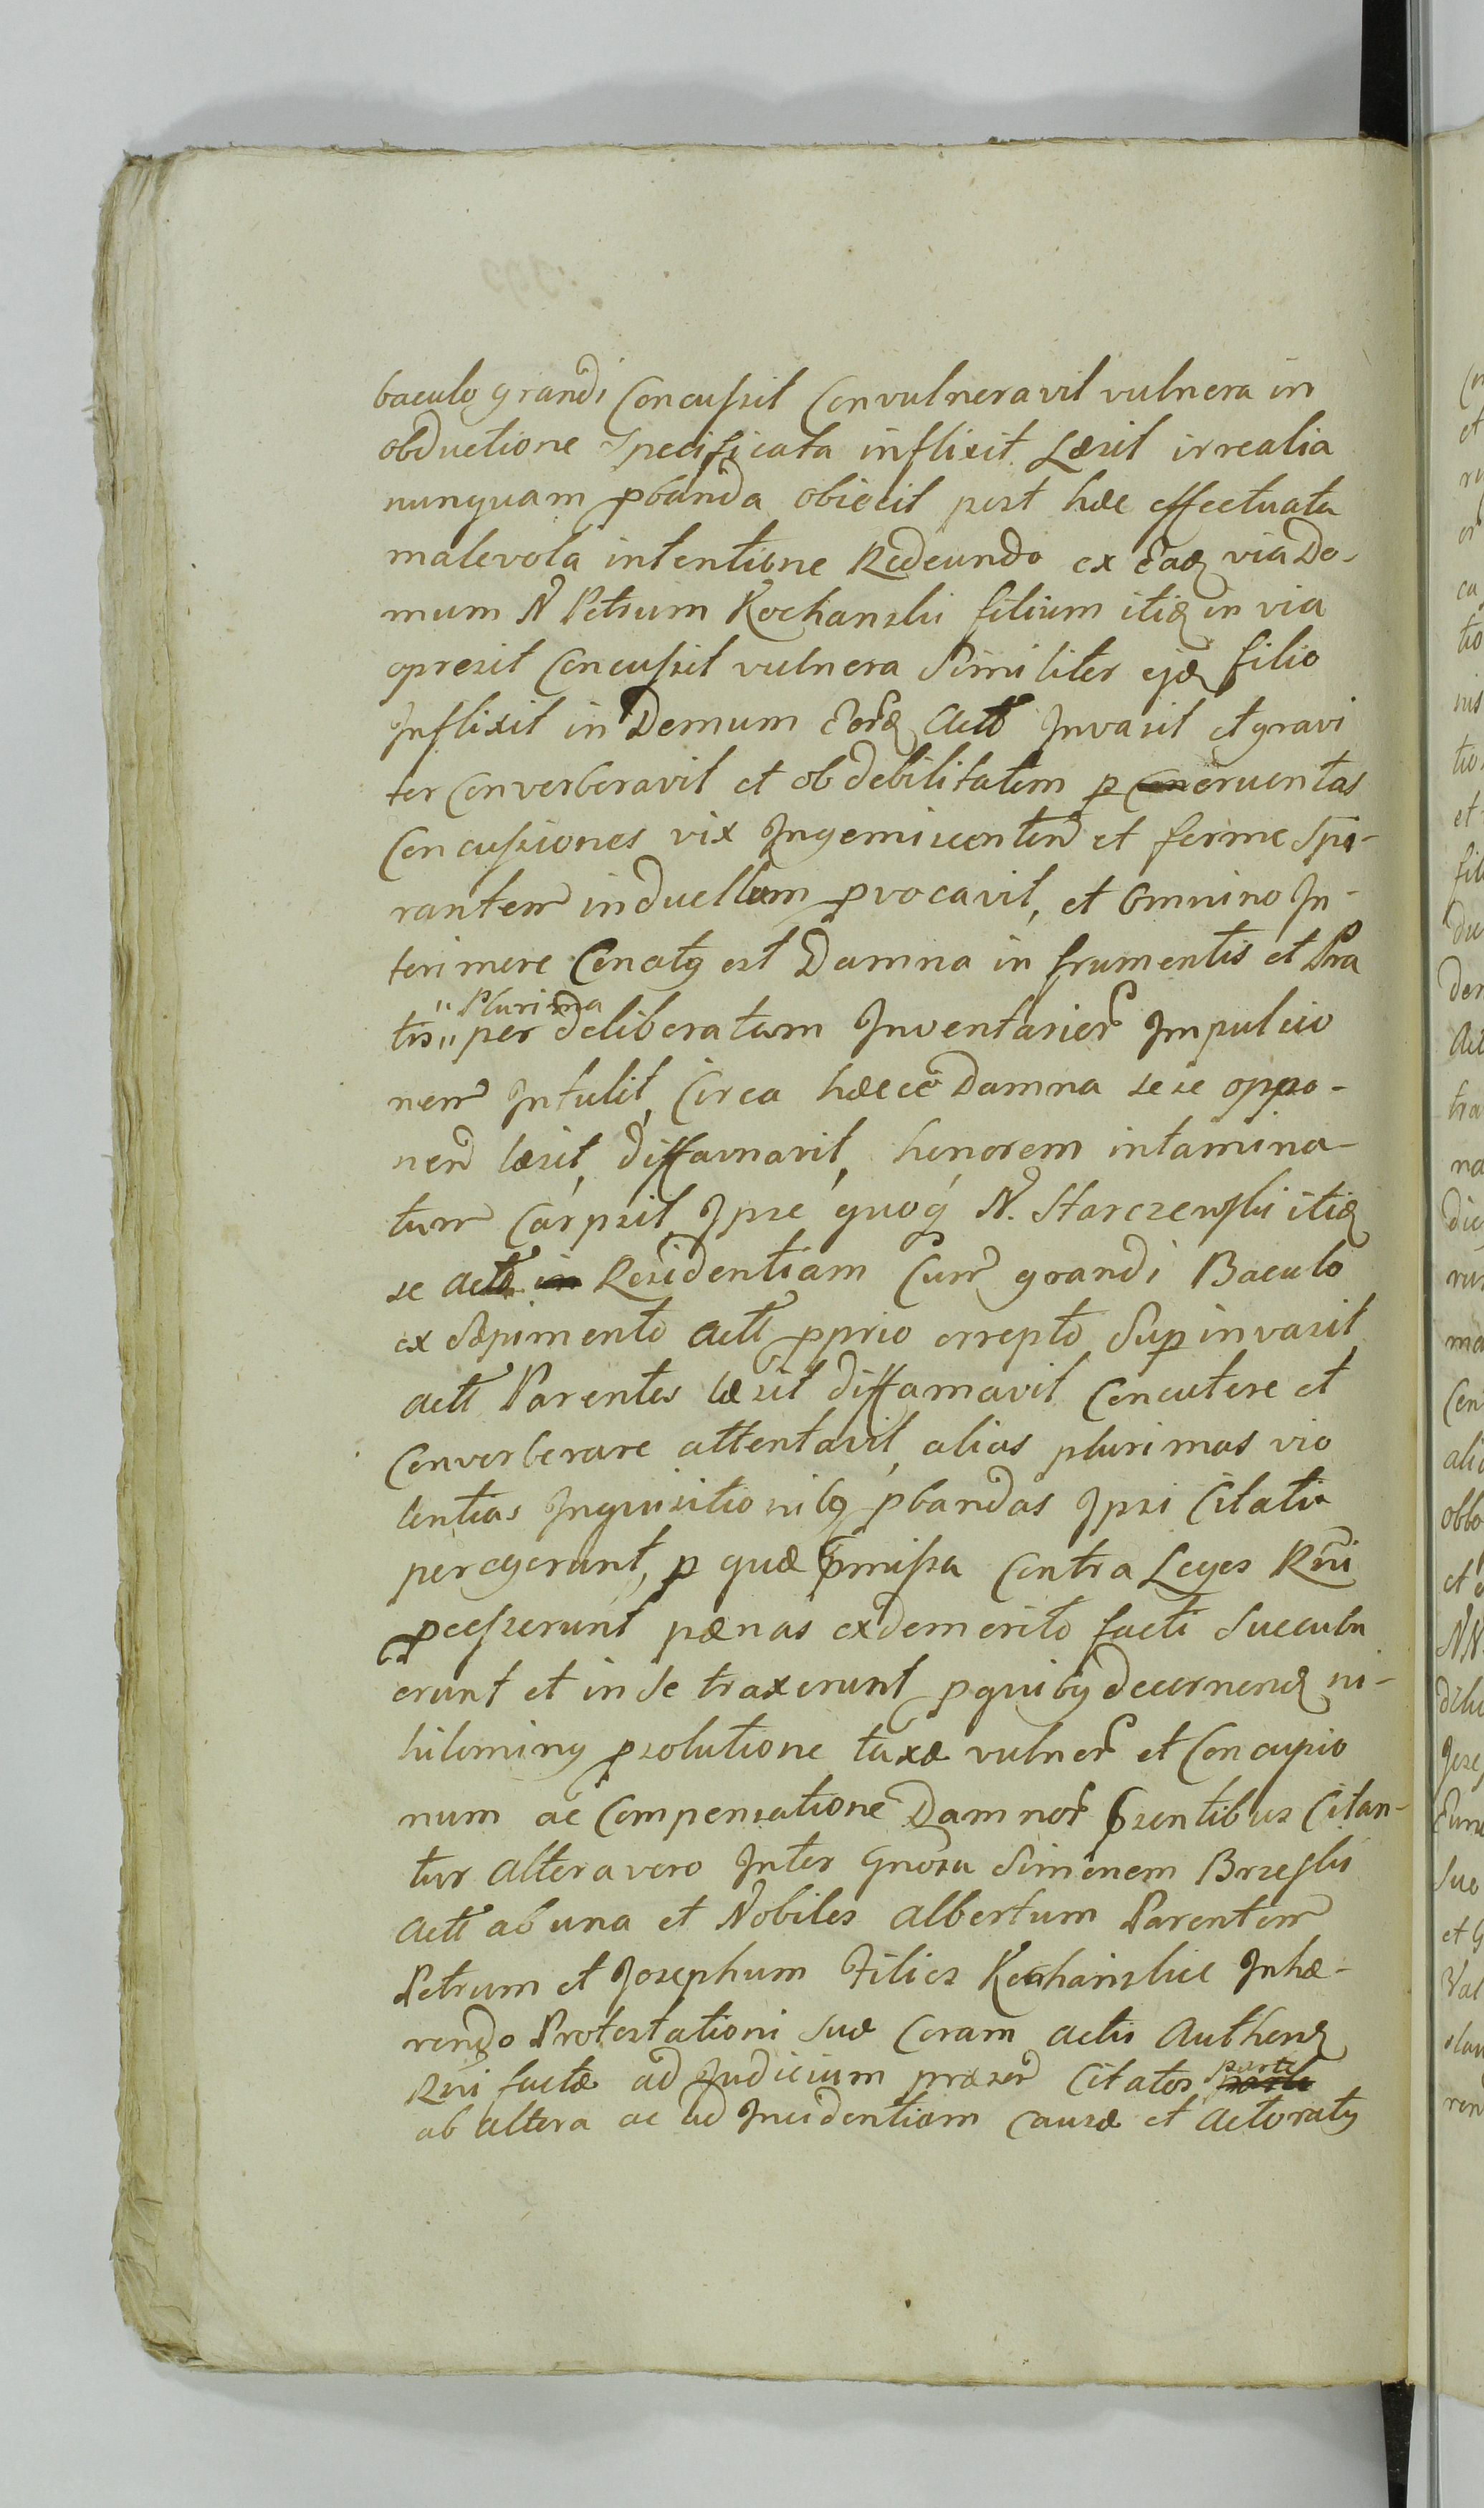 baculo grandi Concussit Convulneravit vulnera in
obductione specificata inflixit Læsit irrealia
nunquam ꝓbanda obiecit post hæc effectuata
malevola intentione Redeundo ex Eadꝫ via Do-
mum N Petrum Kochanski filium itidꝫ in via
opresit Concussit vulnera Similiter ejdꝫ filio
Inflixit in Domum Eordꝫ Actō Invasit et gravi
ter Converberavit et ob debilitatem ꝑ cruentas
Concussiones vix Ingemiscentem̄ et ferme Spi-
rantem̄ in duellum ꝓvocavit, et Omnino In-
terimere Conatꝯ est Damna in frumentis et Pra
"Plurima
tis" per deliberatam Inventarior̄ Impulsio
nem̄ Intulit, Circa hæcce Damna sese oppo-
nen̄ læsit, diffamavit, honorem intamina-
tum̄ Carpsit, Ipse quoqꝫ N. Starczewski itidꝫ
se Actō in Residentiam Cum̄ grandi Baculo
ex Sæpimento Actī ꝓprio errepto Suꝑ invasit
Actī Parentes læsit diffamavit Concutere et
Converberare attentavit, alias plurimas vio
lentias Inquisitionibꝯ ꝓbandas Ipsi Citati
peregerunt, ꝑ quæ p̄missa Contra Leges Rn̄i
ꝓcesserunt pænas ex demerito facti Succubu
erunt et in Se traxerunt ꝓ quibꝯ decernendꝫ ni-
hilominꝯ ꝑsolutione taxæ vulner̄ et Concussio
num ac Compensatione Damnor̄ p̄sentibus Citan-
tur Altera vero Inter Gn̄osu Simonem Brzeski
Actī ab una et Nobiles Albertum Parentem̄
Petrum et Josephum Filios Kochanskie Inhæ-
rendo Protestationi Suæ Coram Actis Authenꝫ
Rn̄i factæ ad Judicium præsen̄ Citatos parte
ab altera ac ad Incidentiam Causæ et Actoratꝯ